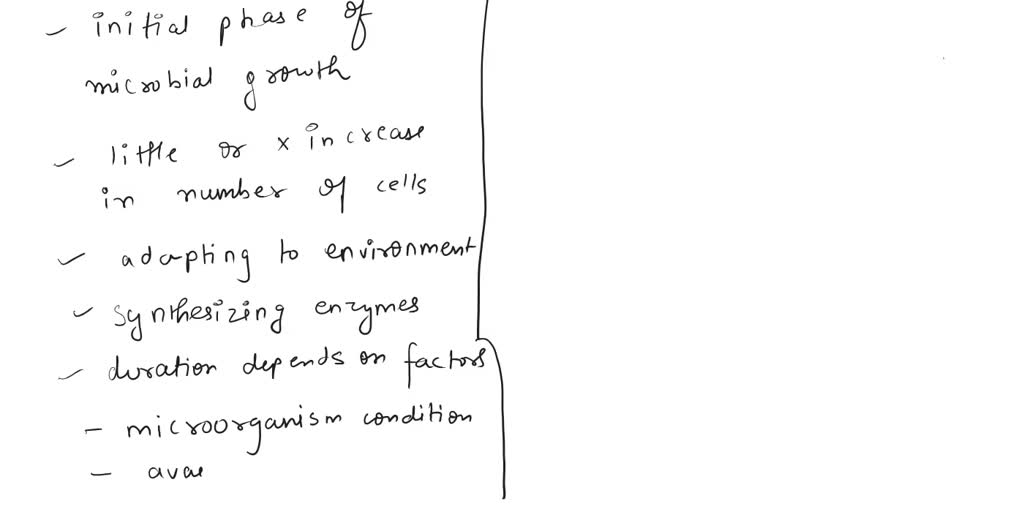 - initial phase of
microbial growth
- little or x increase
in number of cells
- adapting to environment
- synthesizing enzymes
- duration depends on factors
- microorganism condition
- avai